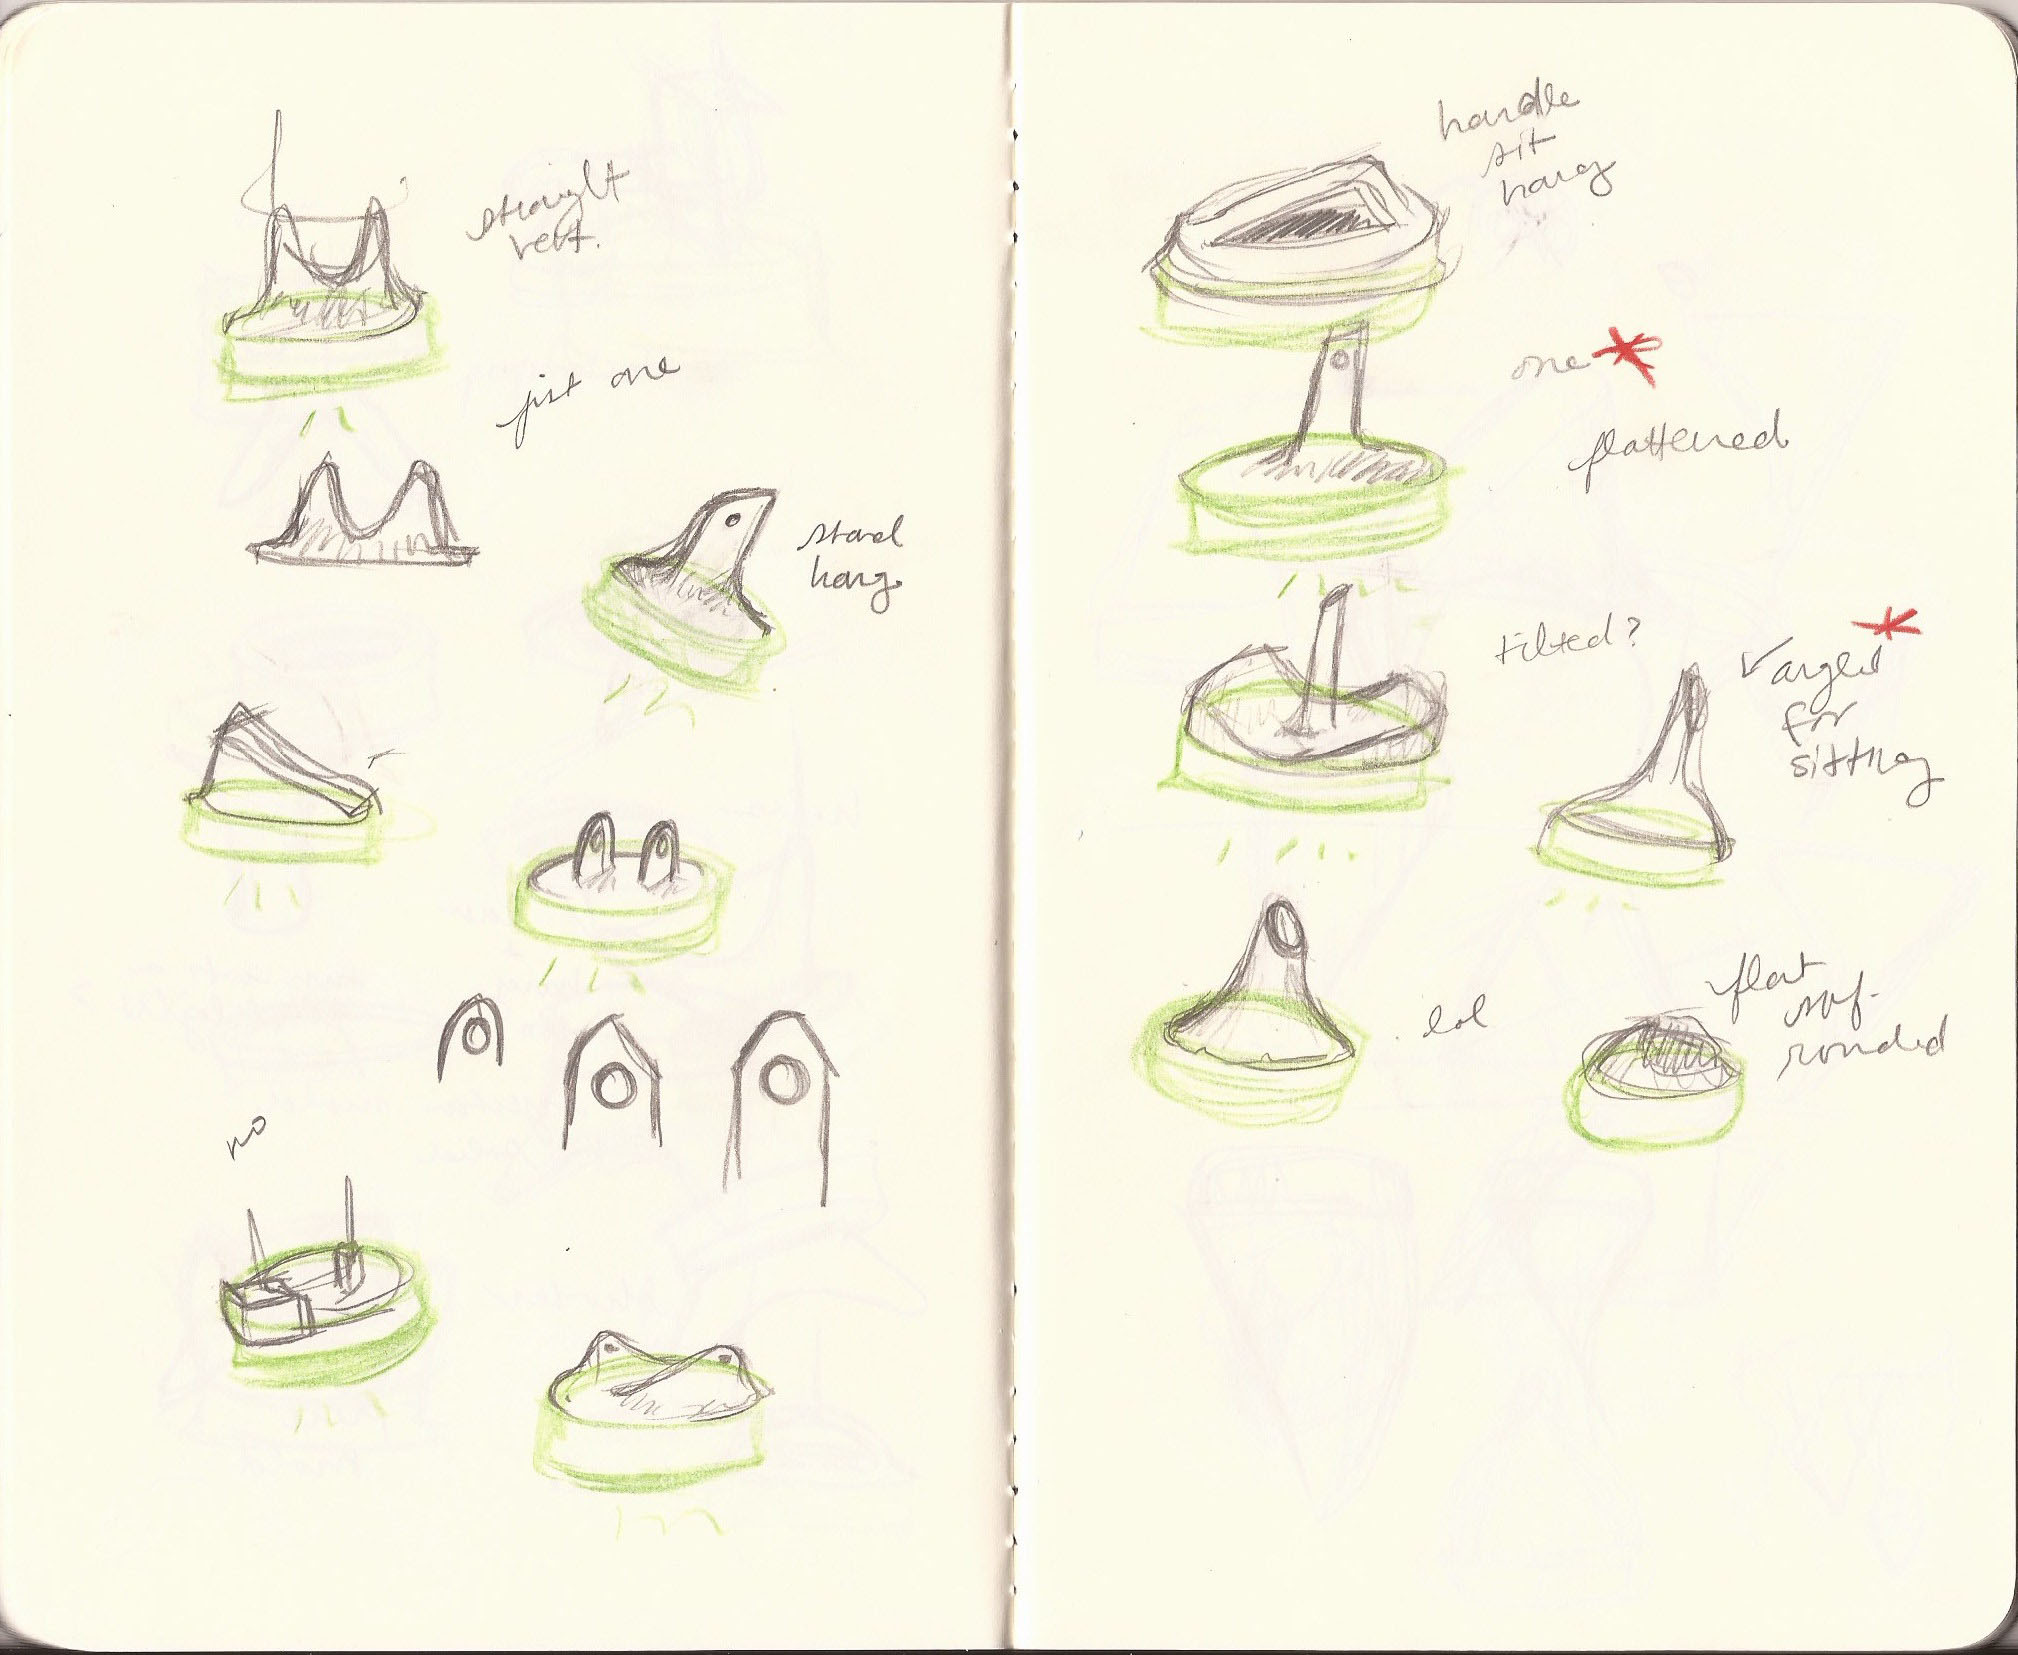 straight
vert.
just one
stand
hang
no
handle
sit
hang
one
flattened
tilted?
angled
for
sitting
lol
flat
surf.
rounded